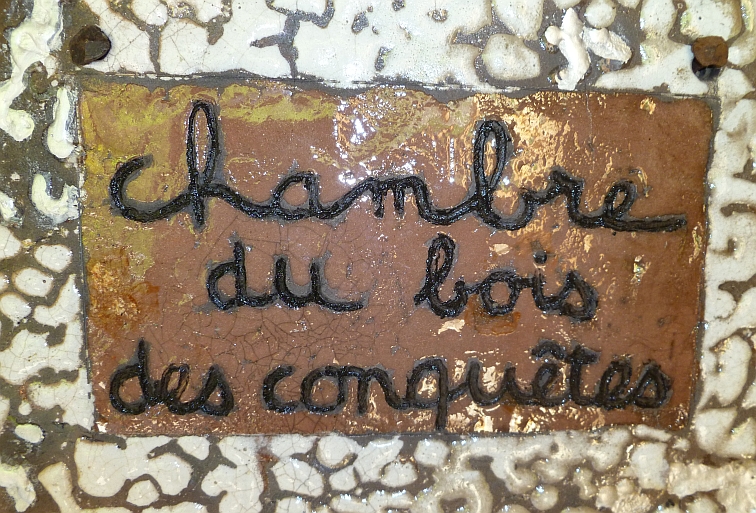 chambre
du bois
des conquêtes